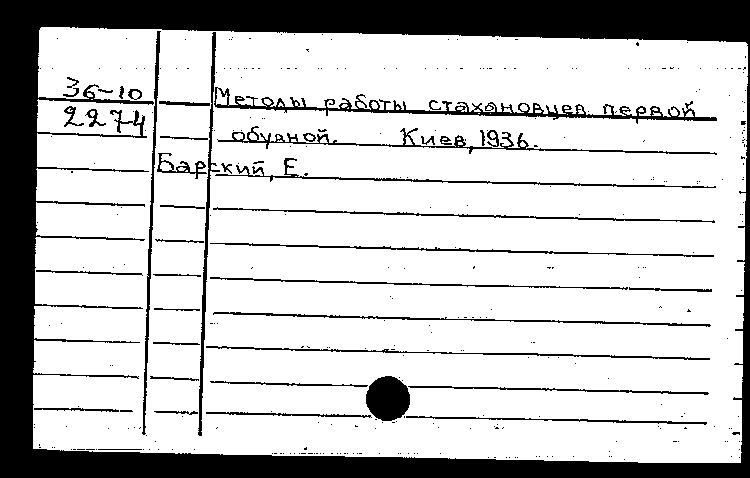 36-10
2274
Методы работы стахановцев первой
обувной. Киев, 1936.
Барский, Е.